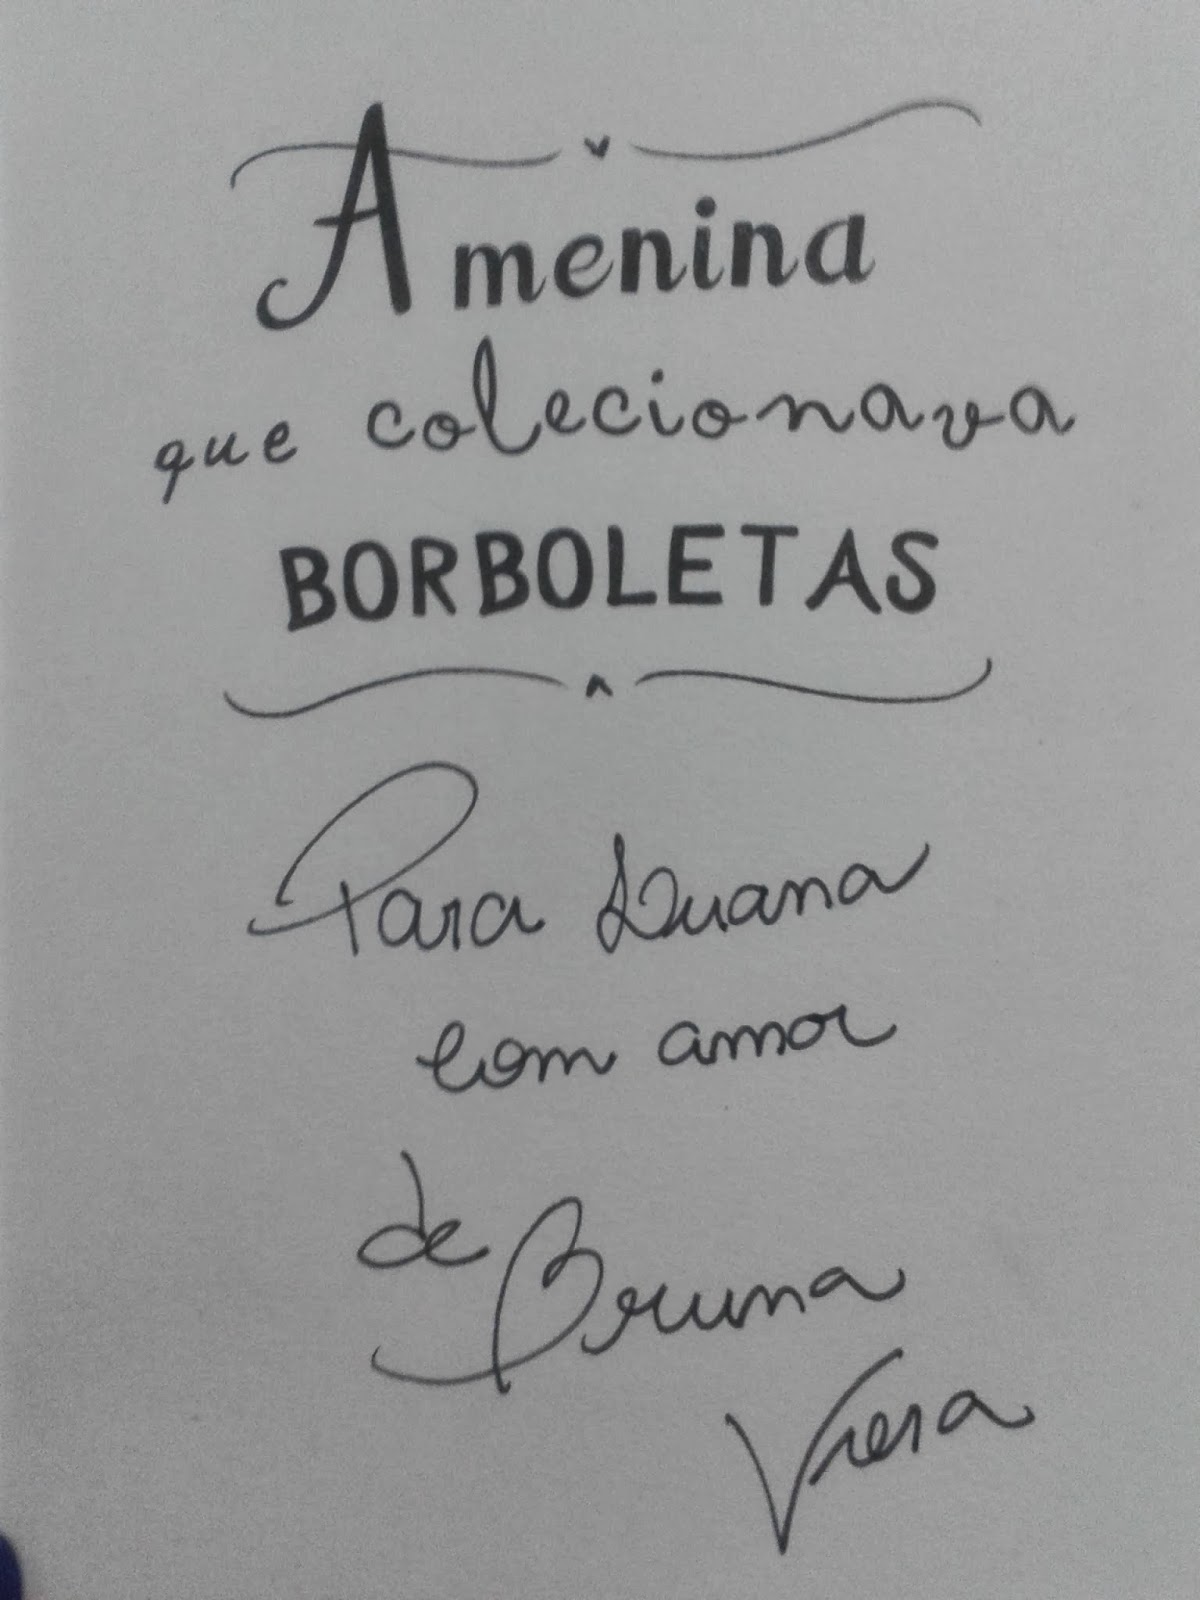 A menina
que colecionava
BORBOLETAS
Para Luana
com amor
de Bruna
Viera